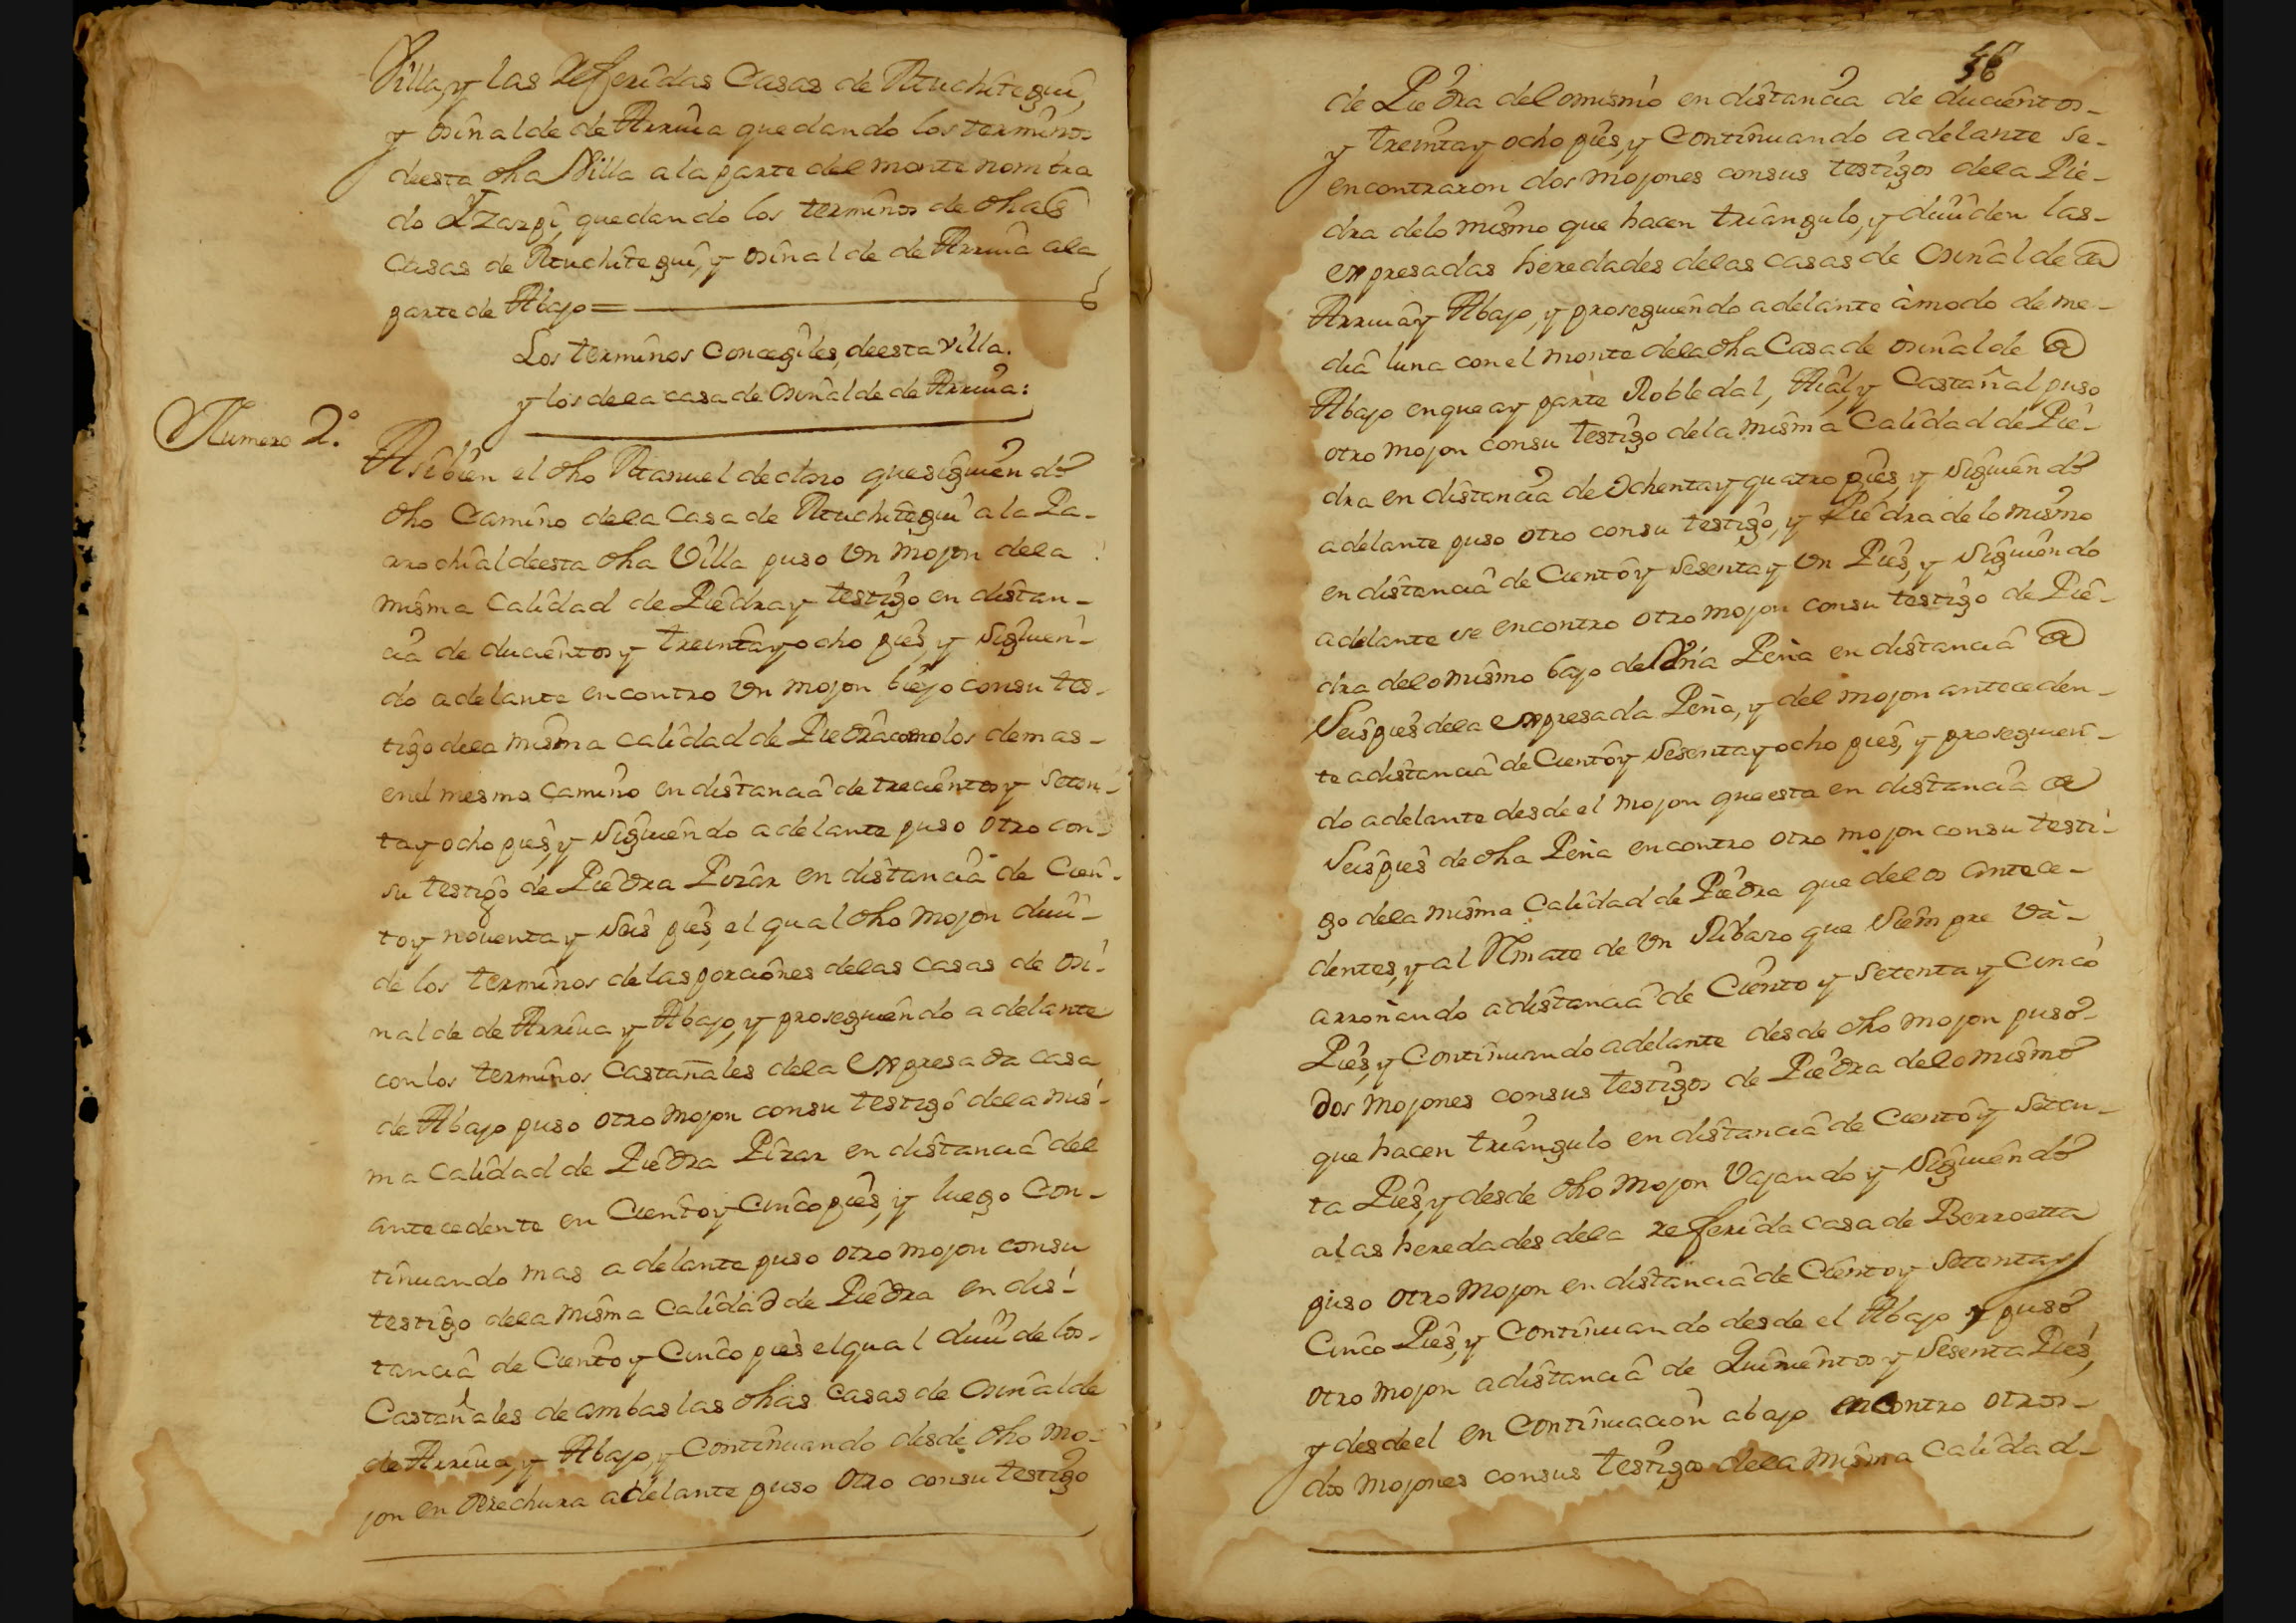 Villa, y las Referidas Casas de Muchitegui,
y osinalde de Arriua quedando los terminos
deesta dha Villa a la parte del monte nombra
do Izarpi, quedando los terminos de dhas
Casas de Muchitegui, y osinalde de Arriua ala
parte de Abajo =
Los terminos Concegiles, deesta villa.
y los dela casa de Osinalde de Arriua:
Numero 2.º
Asibien el dho Manuel declaro quesiguiendo
dho Camino dela Casa de Muchitegui a la Pa-
rrochial deesta dha Villa puso Un Mojon dela
misma Calidad de Piedra y testigo en distan-
cia de ducientos y treinta y ocho pies, y Siguien-
do adelante encontro Un mojon biejo consu tes-
tigo dela misma calidad de Piedra como los demas-
enel mesmo Camino en distancia de trecientos y Seten-
ta y ocho pies, y Siguiendo adelante puso otro con-
su testigo de Piedra Pizar en distancia de Cien-
to y nouenta y Seis pies, el qual dho Mojon diui-
de los terminos de las porciones delas Casas de Osi-
nalde de Arriua y Abajo, y prosiguiendo adelante
conlos terminos Castañales dela Expresada casa
de Abajo puso otro Mojon consu testigo dela mis-
ma Calidad de Piedra Pizar en distancia del
antecedente en Ciento y Cinco pies, y luego Con-
tinuando mas adelante puso otro mojon consu
testigo dela Misma Calidad de Piedra en dis-
tancia de Ciento y Cinco pies el qual diuide los-
Castañales de ambas las dhas Casas de Osinalde
de Arriua, y Abajo, y Continuando desde dho Mo-
jon en Derechura adelante puso Otro consu testigo
56
de Piedra delomismo en distancia de ducientos-
y treinta y ocho pies, y Continuando adelante se-
encontraron dos mojones consus testigos dela Pie-
dra delo mismo que hacen triangulo, y diuiden las-
expresadas heredades delas casas de Osinalde de
Arriua y Abajo, y prosiguiendo adelante à modo de me-
dia luna con el monte dela dha Casa de osinalde de
Abajo enque ay parte Robledal, y Castañal puso
otro Mojon consu testigo dela misma Calidad de Pie-
dra en distancia de Ochenta y quatro pies, y Siguiendo
adelante puso otro consu testigo, y Piedra de lo mismo
en distancia de Ciento y sesenta y Un Pies, y Siguiendo
adelante se encontro otro mojon consu testigo de Pie-
dra delo mismo bajo de Peña en distancia de
Seis pies dela Expresada Peña, y del mojon anteceden-
te a distancia de Ciento y Sesenta y ocho pies, y prosiguien-
do adelante desde el Mojon que esta en distancia de
Seis pies de dha Peña encontro otro mojon consu testi-
go dela misma Calidad de Piedra que delos antece-
dentes, y al Rmate de Un Ribazo que Siempre Va-
arroñando a distancia de Ciento y Setenta y Cinco
Pies, y Continuando adelante desde dho mojon puso-
Dos Mojones consus testigos de Piedra delo mismo
que hacen triangulo en distancia de Ciento y Seten-
ta Pies, y desde dho Mojon Vajando y Siguiendo
alas heredades dela referida casa de Berroetta
puso otro Mojon en distancia de Ciento y Setenta y
Cinco Pies, y Continuando desde el Abajo y puso
otro mojon a distancia de Quinientos y Sesenta Pies,
y desde el en Continuacion abajo encontro otros-
dos Mojones consus testigos dela misma Calidad-